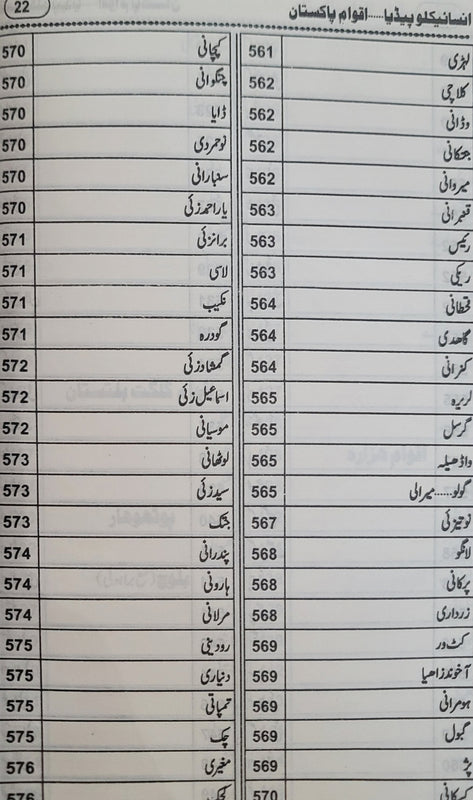 انسائیکلوپیڈیا.....اقوام پاکستان 22
لہڑی 561
کلاچی 562
وڈانی 562
جتکانی 562
میروانی 562
قنبرانی 563
رئیس 563
ریکی 563
قحطانی 564
گاھدی 564
کنرانی 564
کریرہ 565
گرسل 565
واڈھیلہ 565
گولو.....میرالی 565
نوتیزئی 567
لانگو 568
پرکانی 568
زرداری 568
کٹور 569
آخوندزاھیا 569
ہومرانی 569
گبول 569
پڑ 569
570
کیچانی 570
چنگوانی 570
ڈایا 570
نوحمردی 570
سنہارانی 570
یاراحمدزئی 570
برانزئی 571
لاسی 571
نکیب 571
گودرہ 571
گمشادزئی 572
اسماعیل زئی 572
موسیانی 572
لوٹھانی 573
سیدزئی 573
جتک 573
پندرانی 574
ہارونی 574
مرلانی 574
رودینی 575
دنیاری 575
تمپاتی 575
چک 575
مغیری 576
576